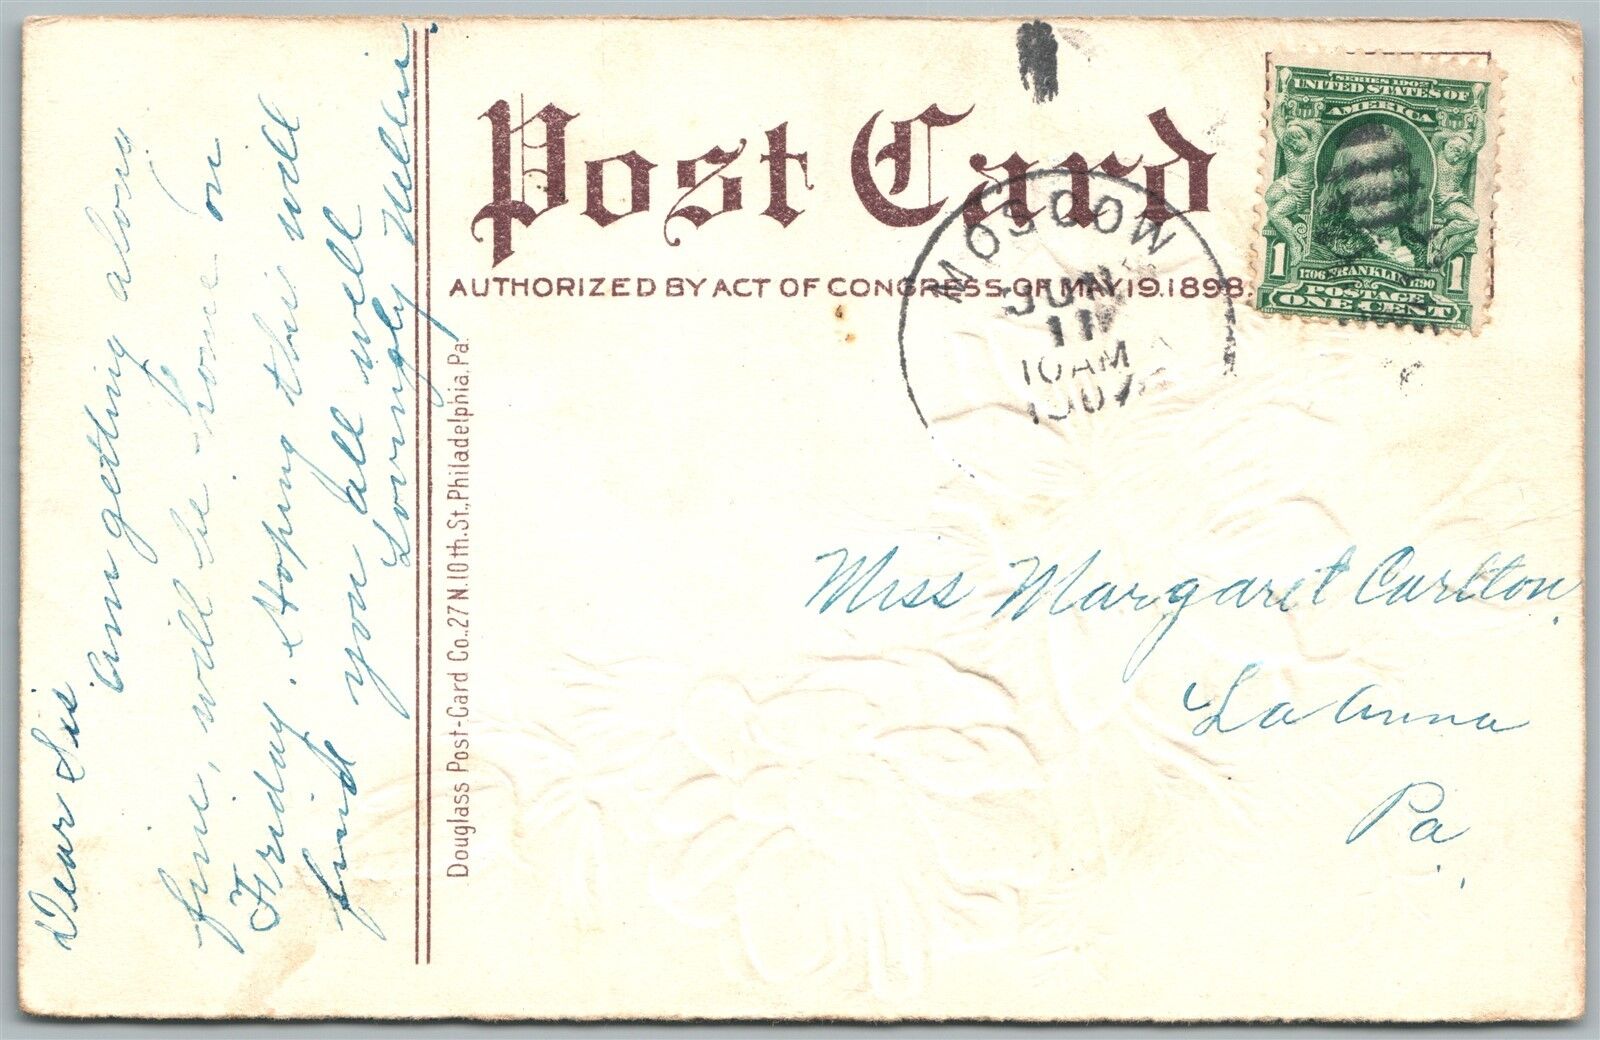 Dear Sis
Am getting along
fine, will be home on
Friday. Hoping this will
find you all well
Lovingly Nellie.
Post Card
AUTHORIZED BY ACT OF CONGRESS OF MAY 19. 1898.
Douglass Post-Card Co., 27 N. 10th. St., Philadelphia, Pa.
MOSCOW
JUN
11
10 AM
1907
SERIES 1902
UNITED STATES OF
AMERICA
1 1
1706 FRANKLIN 1790
POSTAGE
ONE CENT
Miss Margaret Carlton,
La Anna
Pa.